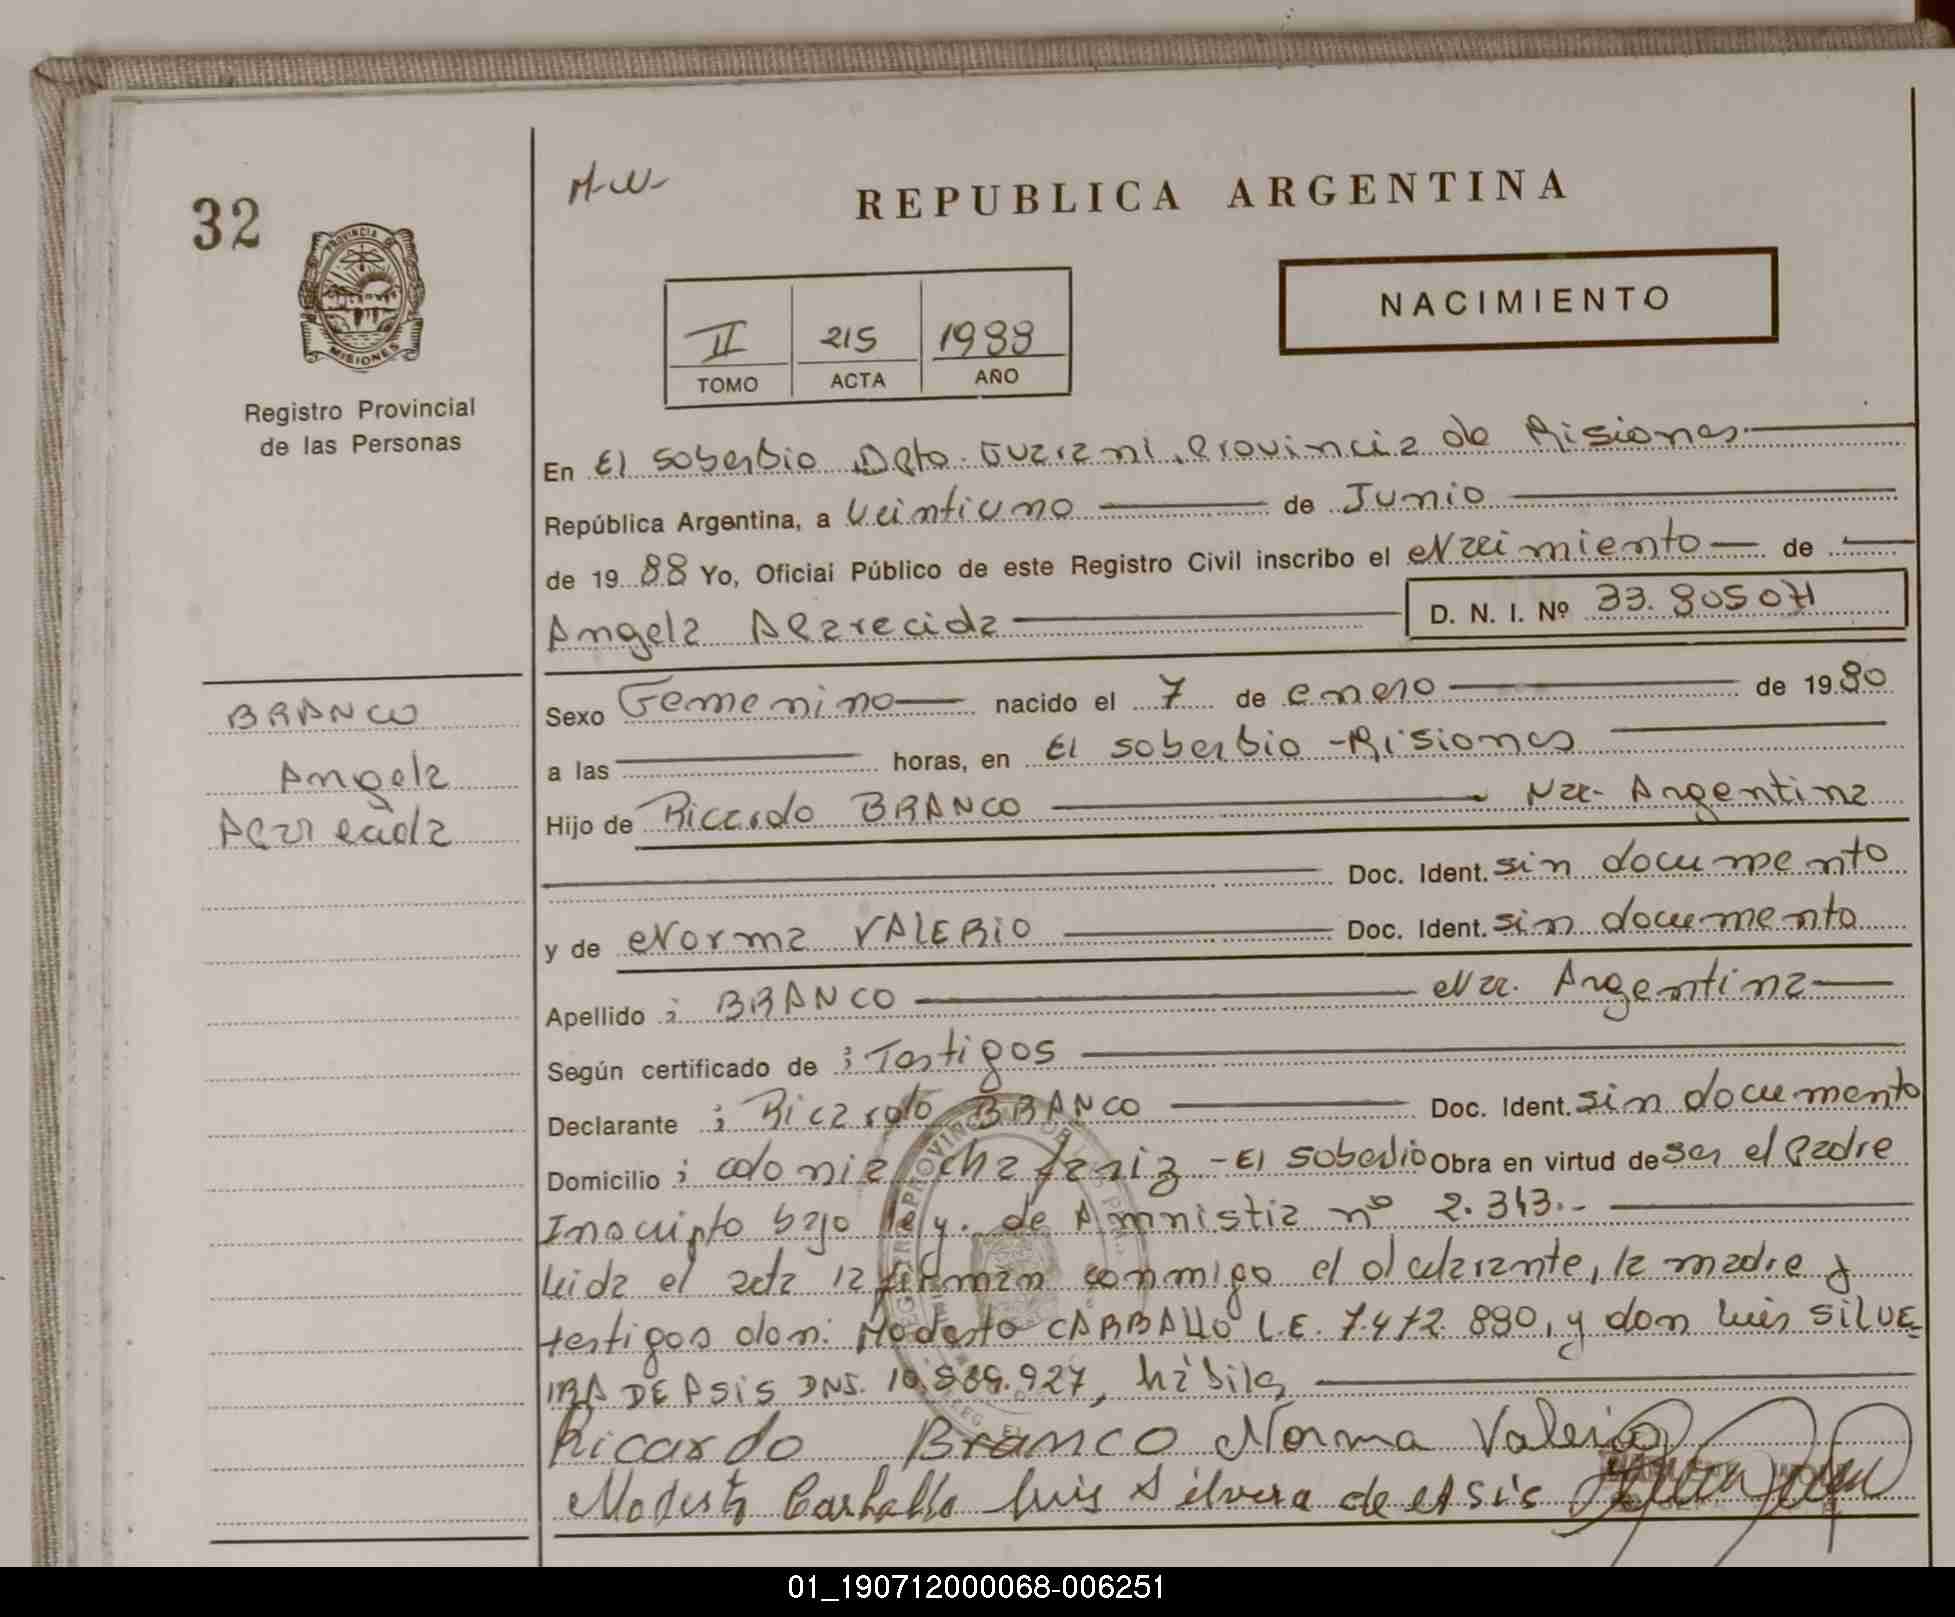 32
PROVINCIA DE
MISIONES
Registro Provincial
de las Personas
BRANCO
Angela
Aparecida
REPUBLICA ARGENTINA
NACIMIENTO
II 215 1988
TOMO ACTA AÑO
En El Soberbio Dpto. Guarani, Provincia de Misiones
República Argentina, a Veintiuno de Junio
de 19 88 Yo, Oficial Público de este Registro Civil inscribo el Nacimiento de
Angela Aparecida D. N. I. Nº
Sexo Femenino nacido el 7 de enero de 19 80
a las horas, en El Soberbio - Misiones
Hijo de Ricardo BRANCO Nac. Argentina
Doc. Ident. sin documento
y de Norma VALERIO Doc. Ident. sin documento
Apellido ; BRANCO Nac. Argentina
Según certificado de ; Testigos
Declarante ; Ricardo BRANCO Doc. Ident. sin documento
Domicilio ; colonia - El Soberbio Obra en virtud de ser el Padre
Inscripto bajo ley. de Amnistia nº 2.343.-
Leida el acta la firman conmigo el declarante, la madre y
testigos don: Modesto CARBALLO L.E. 7.472.890, y don Luis SILVE-
IRA DE ASIS DNI. habiles
Ricardo Branco Norma Valerio
Modesto Carballo Luis Silvera de Asis
01_190712000068-006251